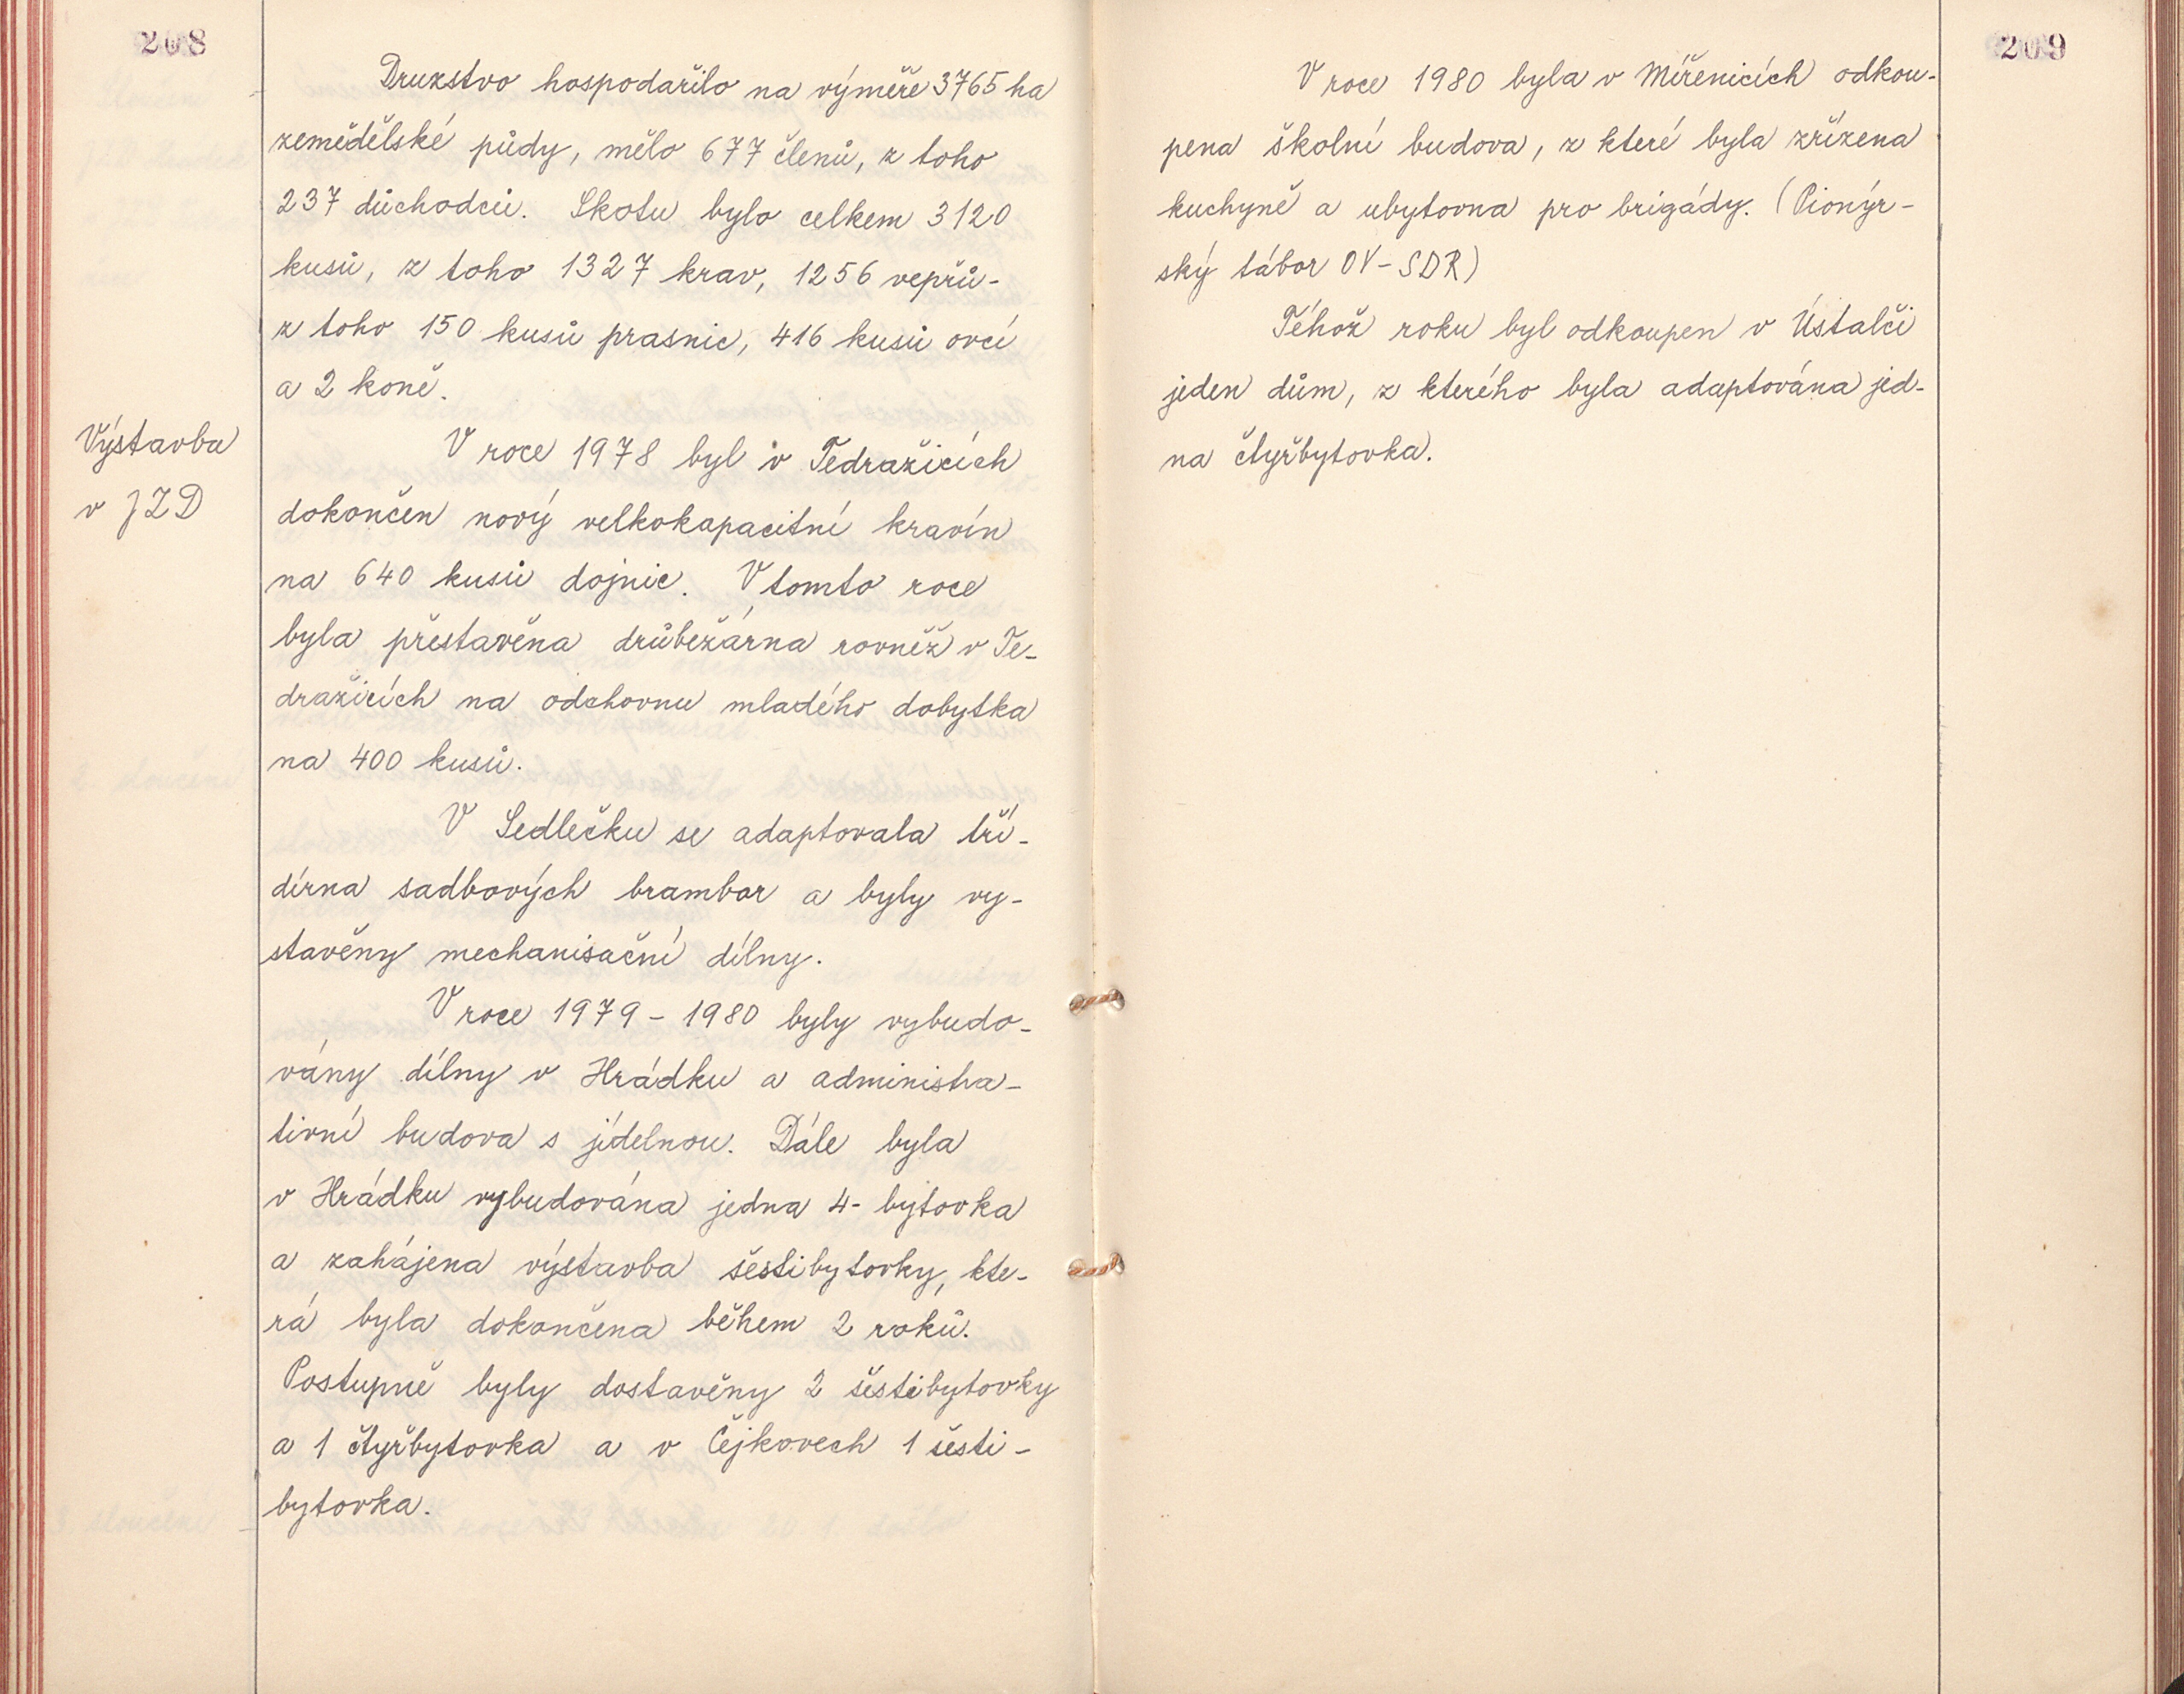 208
Družstvo hospodařilo na výměře 3765 ha
zemědělské půdy, mělo 677 členů, z toho
237 důchodců. Skotu bylo celkem 3120
kusů, z toho 1327 krav, 1256 vepřů-
z toho 150 kusů prasnic, 416 kusů ovcí
a 2 koně.
Výstavba
v JZD
V roce 1978 byl v Tedražicích
dokončen nový velkokapacitní kravín
na 640 kusů dojnic. V tomto roce
byla přestavěna drůbežárna rovněž v Te-
dražicích na odchovnu mladého dobytka
na 400 kusů.
V Sedlečku se adaptovala tří-
dírna sadbových brambor a byly vy-
stavěny mechanisační dílny.
V roce 1979 - 1980 byly vybudo-
vány dílny v Hrádku a administra-
tivní budova s jídelnou. Dále byla
v Hrádku vybudována jedna 4- bytovka
a zahájena výstavba šestibytovky, kte-
rá byla dokončena během 2 roků.
Postupně byly dostavěny 2 šestibytovky
a 1 čtyřbytovka a v Čejkovech 1 šesti-
bytovka.
209
V roce 1980 byla v Mířenicích odkou-
pena školní budova, z které byla zřízena
kuchyně a ubytovna pro brigády. (Pionýr-
ský tábor OV-SDR)
Téhož roku byl odkoupen v Ústalči
jeden dům, z kterého byla adaptována jed-
na čtyřbytovka.